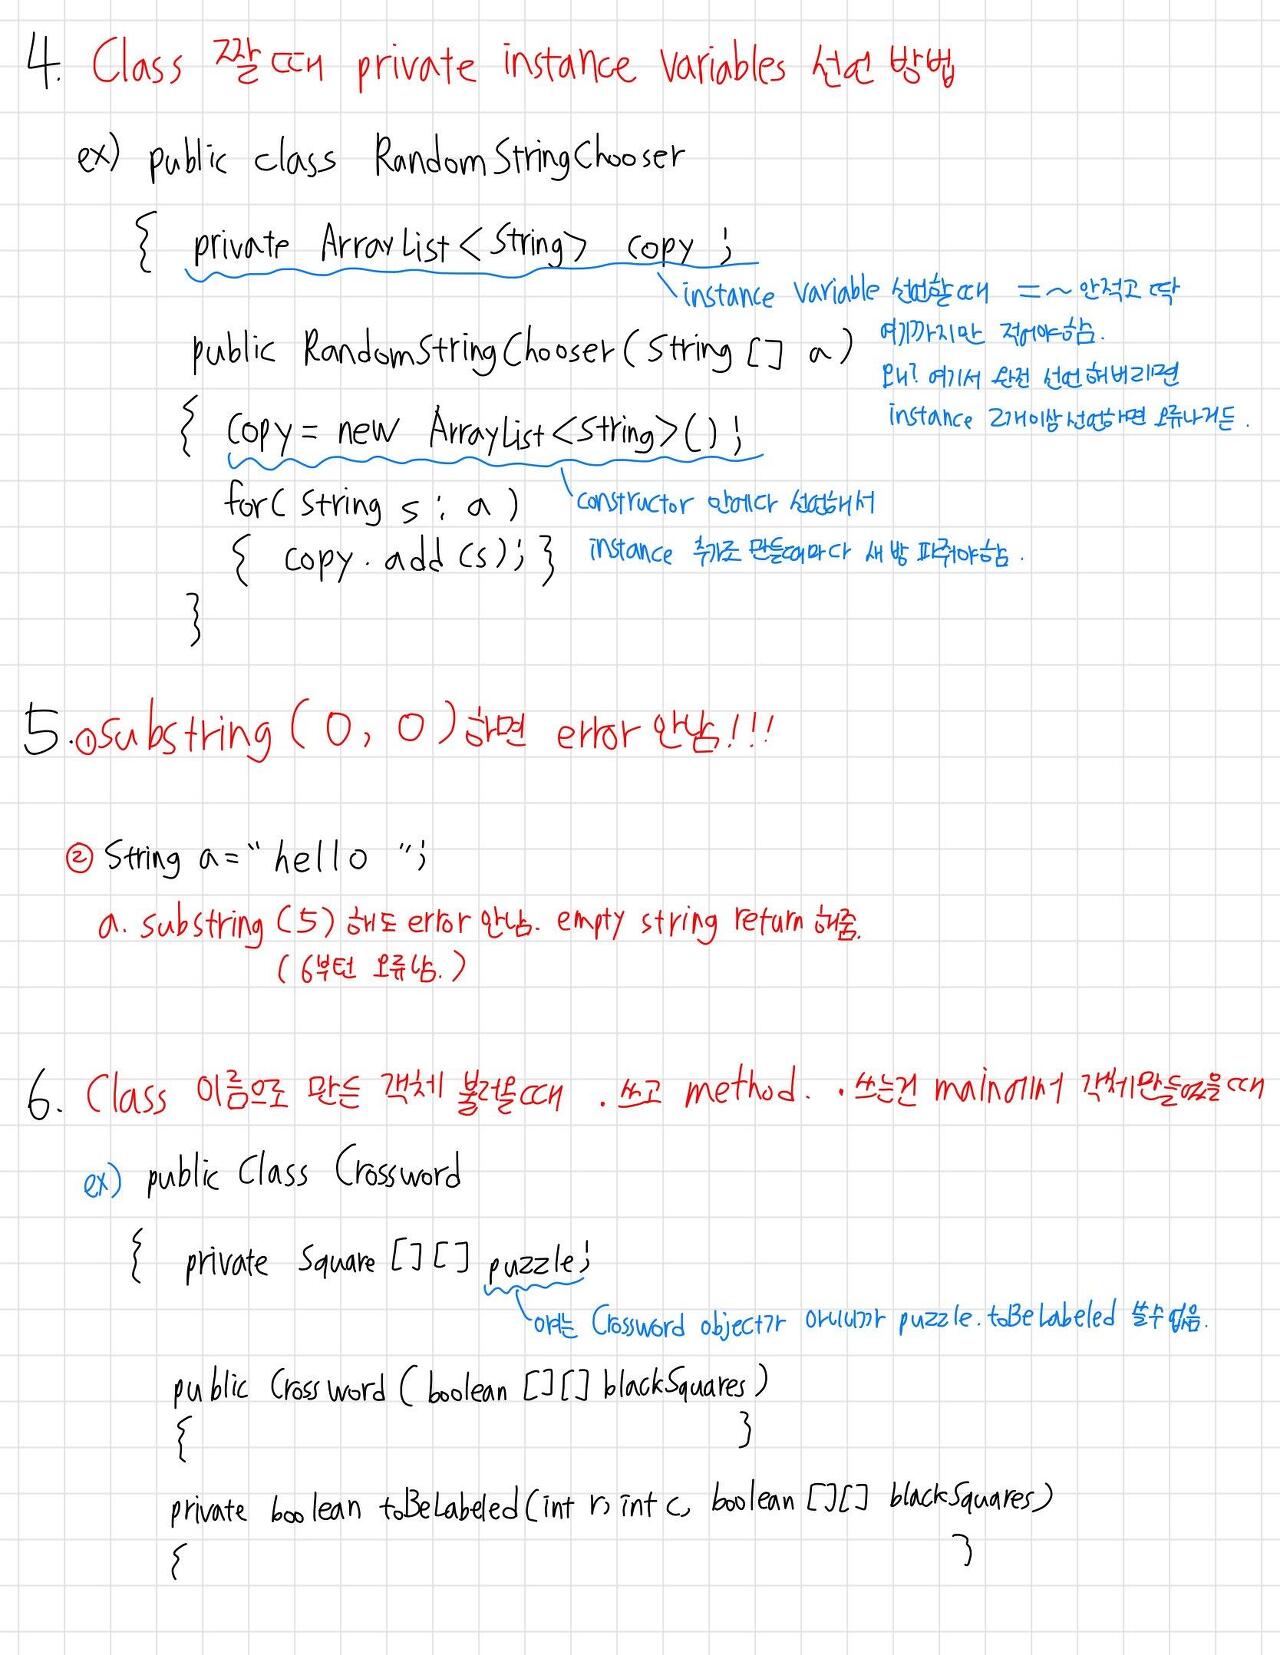 4. Class 짤 때 private instance variables 선언 방법
ex) public class RandomStringChooser
{ private ArrayList<String> copy ;
instance variable 선언할때 = ~ 안적고 딱
여기까지만 적어야함.
왜? 여기서 완전 선언해버리면
instance 2개이상 선언하면 오류나거든.
public RandomStringChooser(String [] a)
{ copy = new ArrayList<String>();
constructor 안에다 선언해서
instance 추가로 만들때마다 새 방 파줘야함.
for( String s : a )
{ copy . add (s); }
}
5. ① substring ( 0, 0 ) 하면 error 안남!!!
② String a = "hello ";
a. substring (5) 해도 error 안남. empty string return 해줌.
( 6부턴 오류남. )
6. Class 이름으로 만든 객체 불러올때 . 쓰고 method. . 쓰는건 main에서 객체만들었을때
ex) public Class Crossword
{ private Square [][] puzzle;
얘는 Crossword object가 아니니까 puzzle.toBeLabeled 쓸수없음.
public Crossword ( boolean [][] blackSquares )
{ }
private boolean toBeLabeled(int r, int c, boolean [][] blackSquares)
{ }